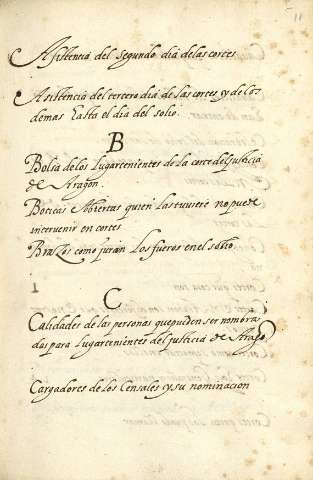 11
Asistencia del segundo dia delas cortes
Asistencia del tercero dia de las cortes y de los
demas hasta el dia del solio.
B
Bolsa delos lugartenientes de la corte del justicia
de Aragon.
Boticas Abiertas quien las tuviere no puede
intervenir en cortes
Brazos como juran los fueros en el solio.
C
Calidades de las personas que pueden ser nombra
das para lugartenientes del justicia de Arago
Cargadores de los Censales y su nominacion